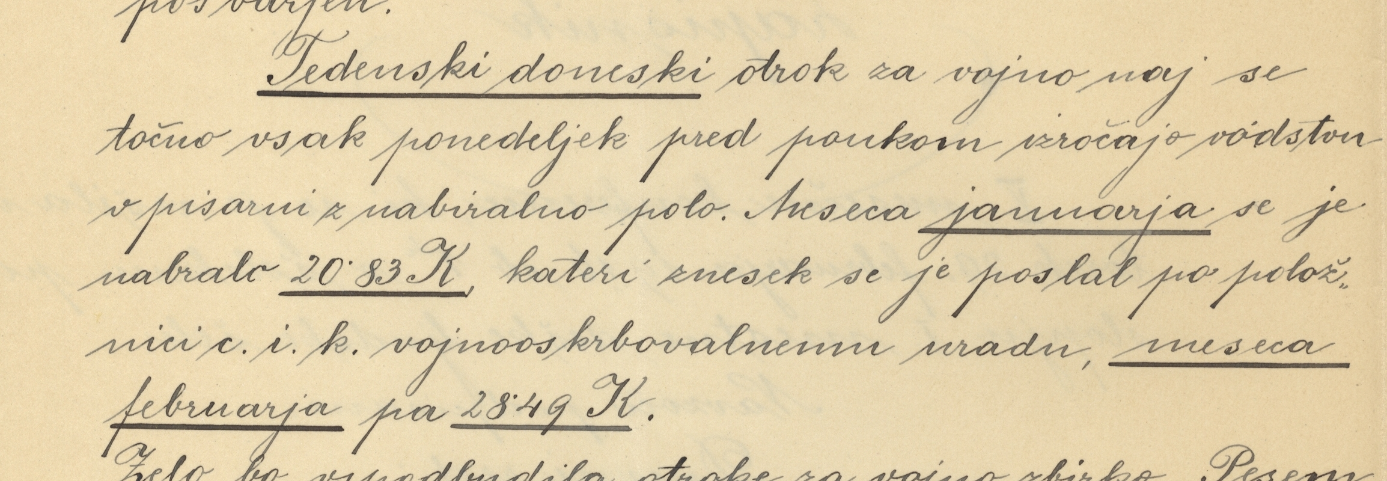 posvarjen.
Tedenski doneski otrok za vojno naj se
točno vsak ponedeljek pred poukom izročajo vodstvu
v pisarni z nabiralno polo. Meseca januarja se je
nabralo 20·83 K, kateri znesek se je poslal po polož„
nici c. i. k. vojnooskrbovalnemu uradu, meseca
februarja pa 28·49 K.
Zelo bo vspodbudila otroke za vojno zbirko. Pesem